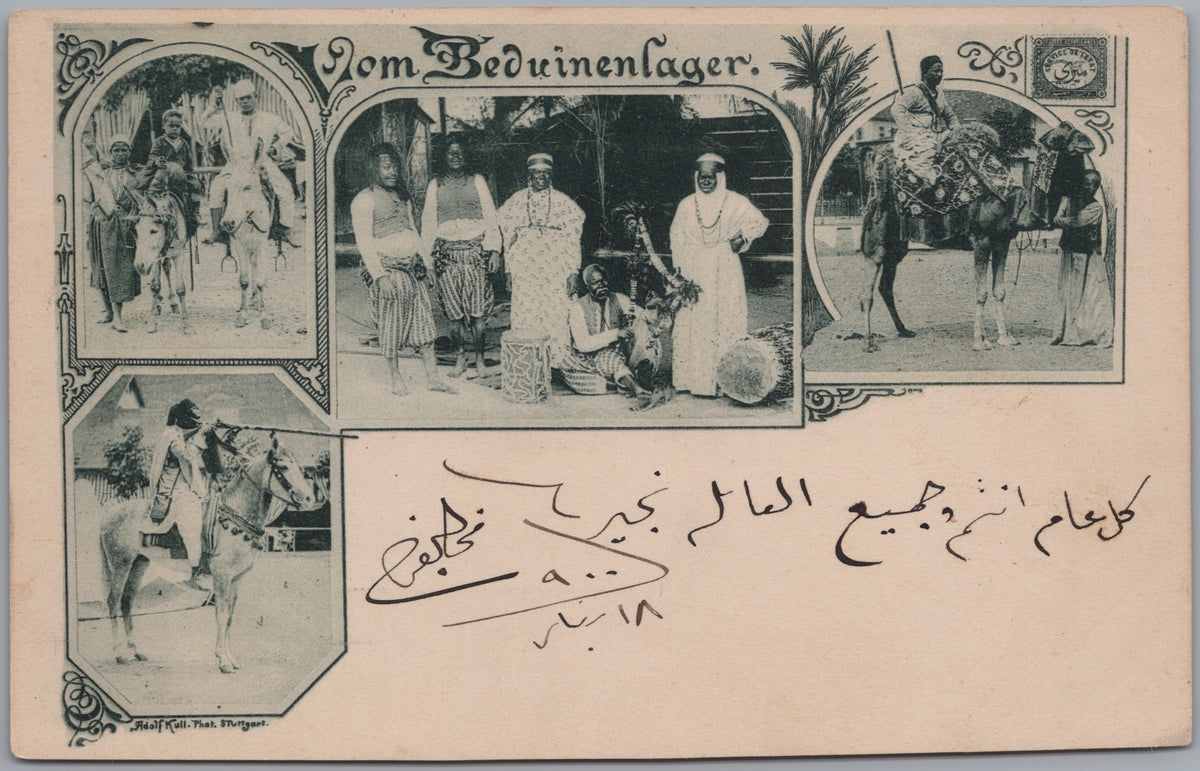 Vom Beduinenlager.
ميري
كل عام انتم وجميع العائلة بخير
٩٠٠
١٨ يناير
Adolf Kull. Phot. Stuttgart.